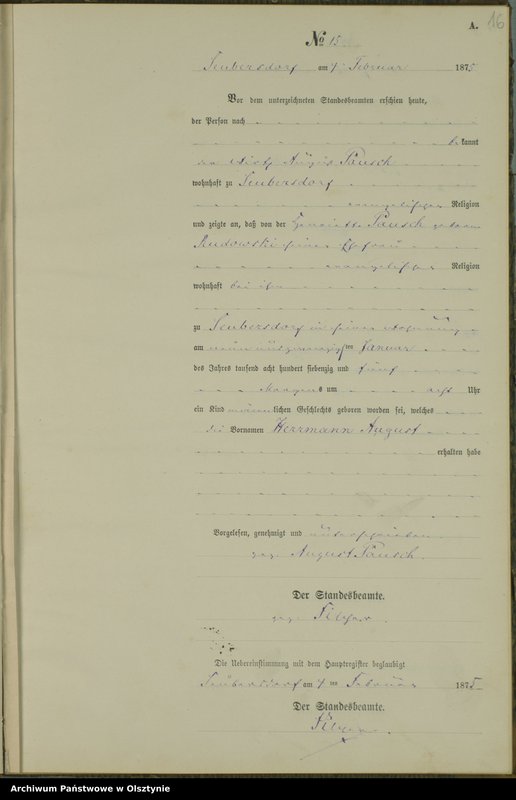 A. 16
No 15.
Seubersdorf am 4. Februar 1875
Vor dem unterzeichneten Standesbeamten erschien heute,
der Person nach
bekannt
der Wirth August Pausch
wohnhaft zu Seubersdorf
evangelischer Religion
und zeigte an, daß von der Henriette Pausch geborene
Rudowski seiner Ehefrau
evangelischer Religion
wohnhaft bei ihm
zu Seubersdorf in seiner Wohnung
am neunundzwanzigsten Januar
des Jahres tausend acht hundert siebenzig und fünf
Morgens um acht Uhr
ein Kind männlichen Geschlechts geboren worden sei, welches
die Vornamen Herrmann August
erhalten habe
Vorgelesen, genehmigt und unterschrieben
gez. August Pausch.
Der Standesbeamte.
gez.
Die Uebereinstimmung mit dem Hauptregister beglaubigt
Seubersdorf am 4 ten Februar 1875
Der Standesbeamte.
Archiwum Państwowe w Olsztynie